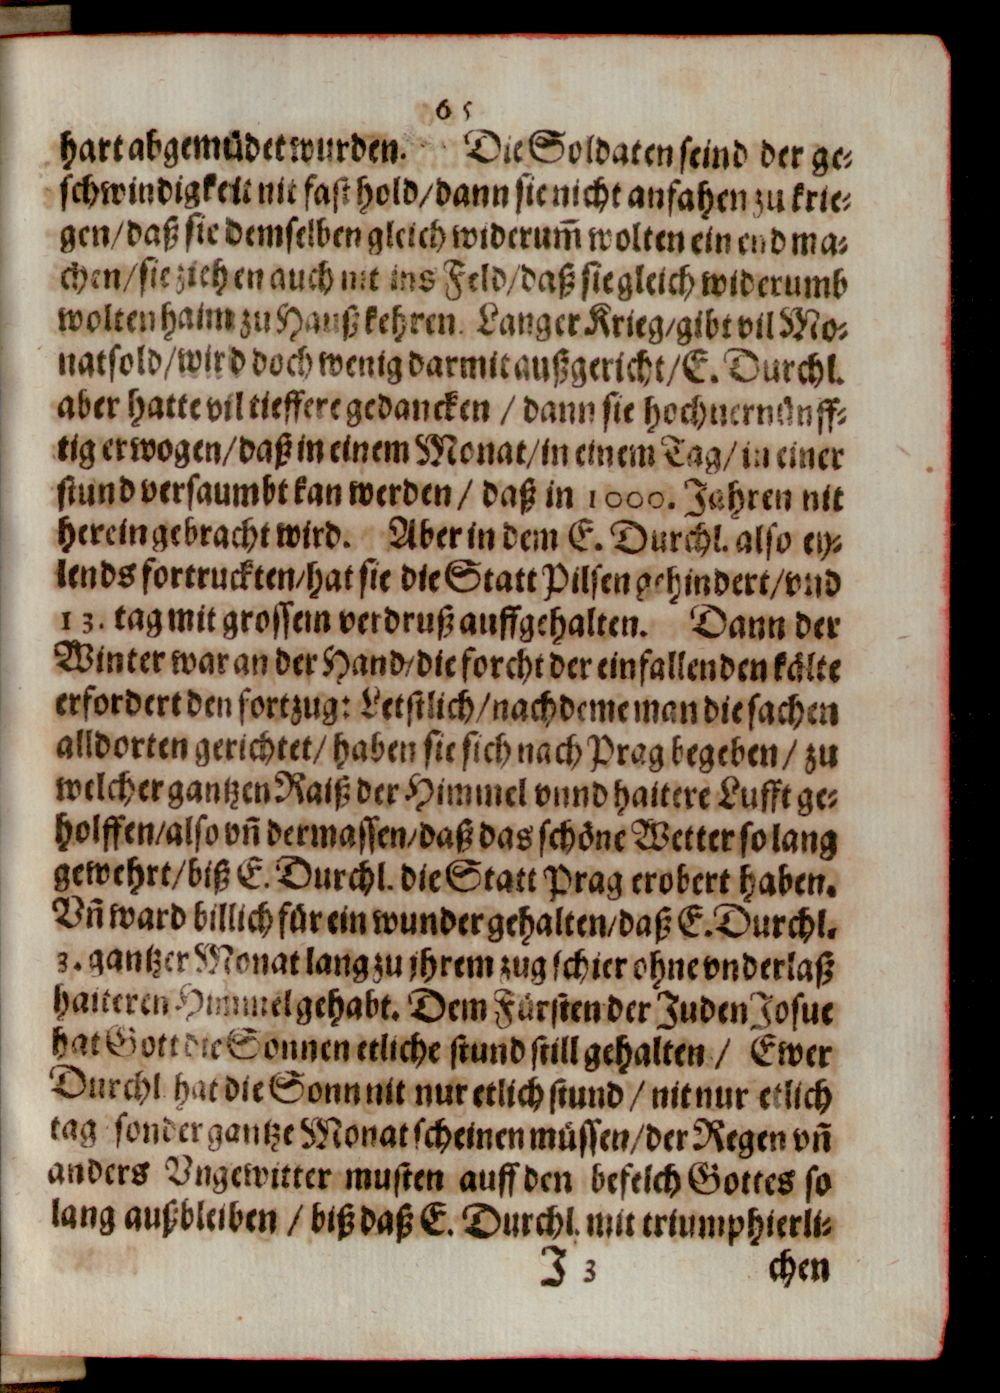 65
hart abgemüdet wurden. Die Soldaten seind der ge-
schwindigkeit nit fast hold/dann sie nicht anfahen zu krie-
gen/daß sie demselben gleich widerum̄ wolten ein end ma-
chen/sie ziehen auch nit ins Feld/daß sie gleich widerumb
wolten haim zu Hauß kehren. Langer Krieg/gibt vil Mo-
natsold/wird doch wenig darmit außgericht/E. Durchl.
aber hatte vil tieffere gedancken / dann sie hochuernünff-
tig erwogen/daß in einem Monat/in einem Tag/in einer
stund versaumbt kan werden / daß in 1000. Jahren nit
herein gebracht wird. Aber in dem E. Durchl. also ey-
lends fortruckten/hat sie die Statt Pilsen gehindert/vnd
13. tag mit grossem verdruß auffgehalten. Dann der
Winter war an der Hand/die forcht der einfallenden kälte
erfordert den fortzug: Letstlich/nachdeme man die sachen
alldorten gerichtet/ haben sie sich nach Prag begeben / zu
welcher gantzen Raiß der Himmel vnnd haitere Lufft ge-
holffen/also vn̄ dermassen/daß das schöne Wetter so lang
gewehrt/biß E. Durchl. die Statt Prag erobert haben.
Vn̄ ward billich für ein wunder gehalten/daß E. Durchl.
3. gantzer Monat lang zu jhrem zug schier ohne vnderlaß
haiteren Himmel gehabt. Dem Fürsten der Juden Josue
hat Gott die Sonnen etliche stund still gehalten / Ewer
Durchl hat die Sonn nit nur etlich stund / nit nur etlich
tag sonder gantze Monat scheinen müssen/der Regen vn̄
anders Vngewitter musten auff den befelch Gottes so
lang außbleiben / biß daß E. Durchl. mit triumphierli-
J 3 chen